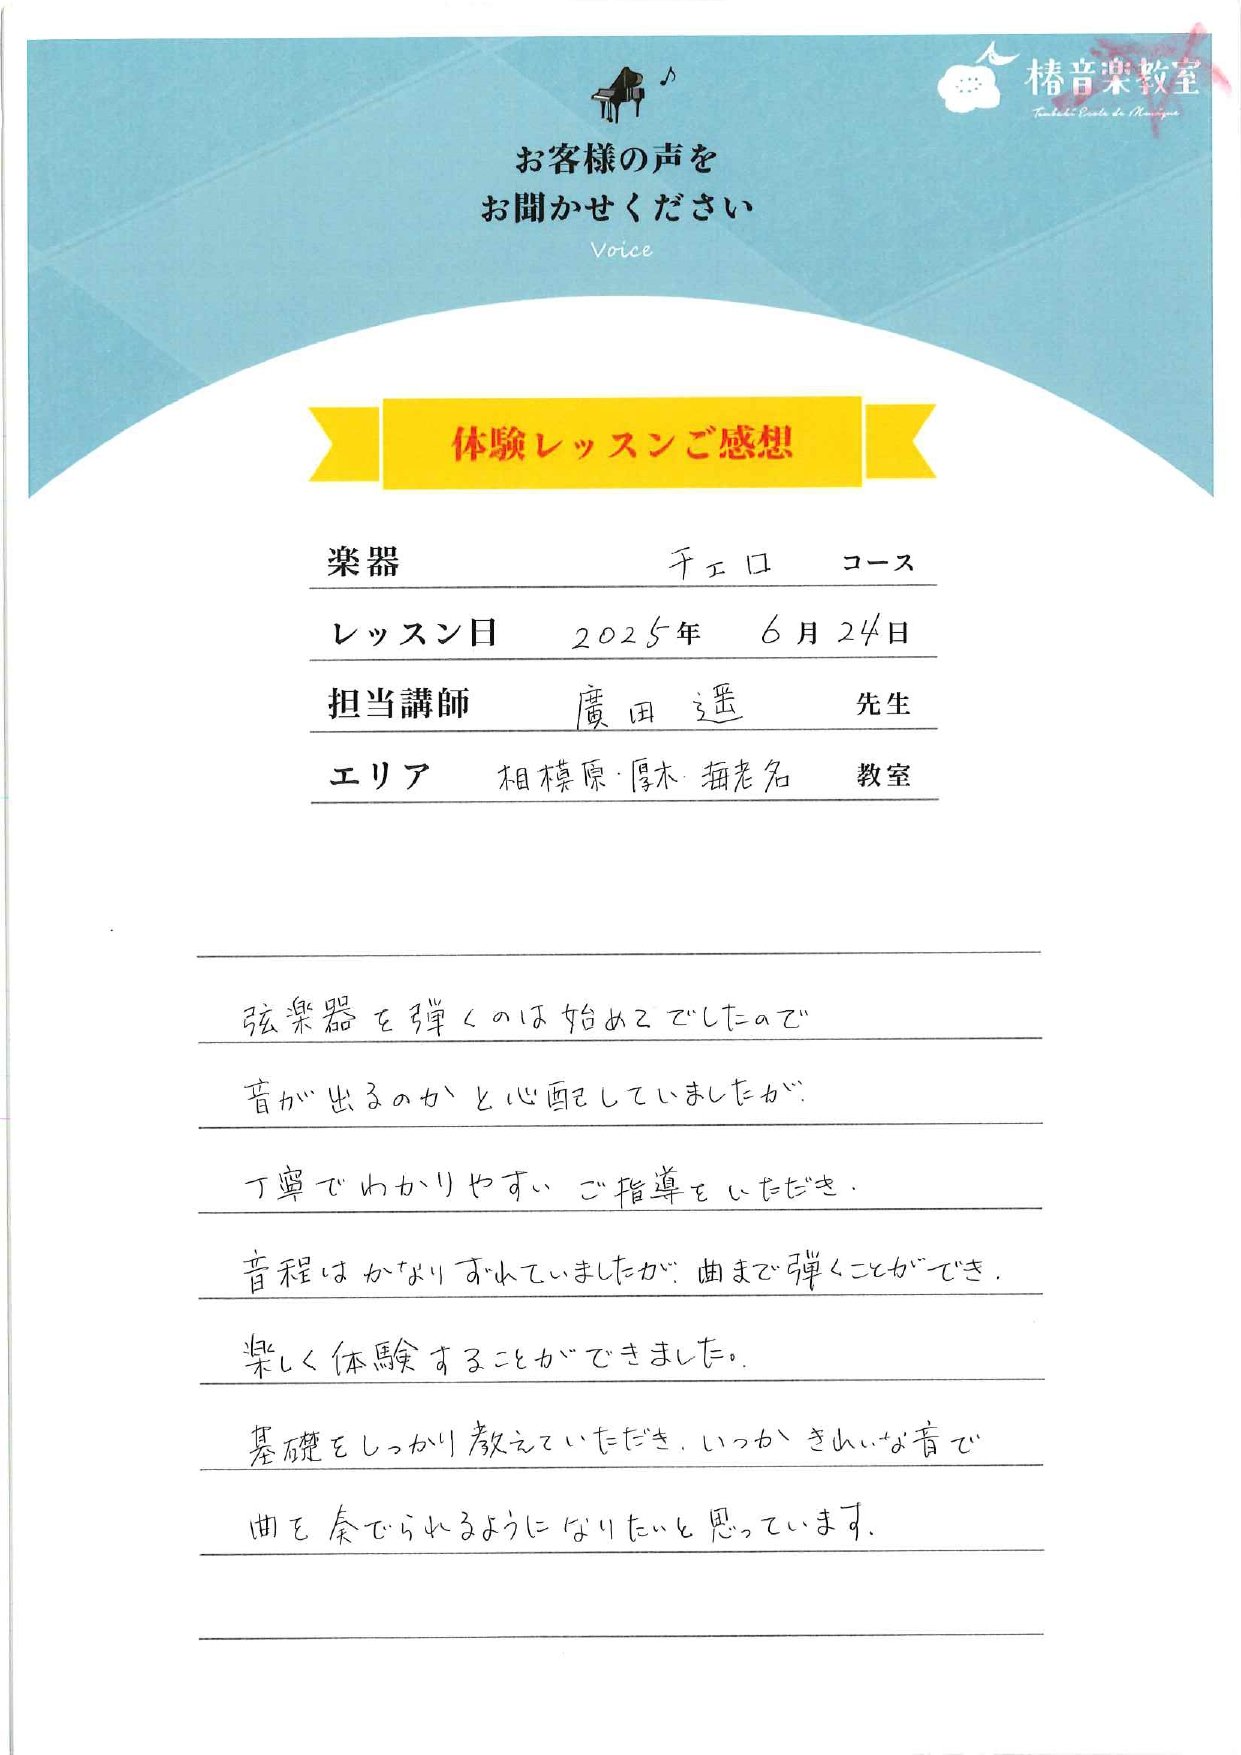 椿音楽教室
Tsubaki Ecole de Musique
お客様の声を
お聞かせください
Voice
体験レッスンご感想
楽器 チェロ コース
レッスン日 2025年 6月24日
担当講師 廣田 遥 先生
エリア 相模原・厚木・海老名 教室
弦楽器を弾くのは始めてでしたので
音が出るのかと心配していましたが、
丁寧でわかりやすい ご指導をいただき、
音程はかなりずれていましたが、曲まで弾くことができ、
楽しく体験することができました。
基礎をしっかり教えていただき、いつか きれいな音で
曲を奏でられるようになりたいと思っています。